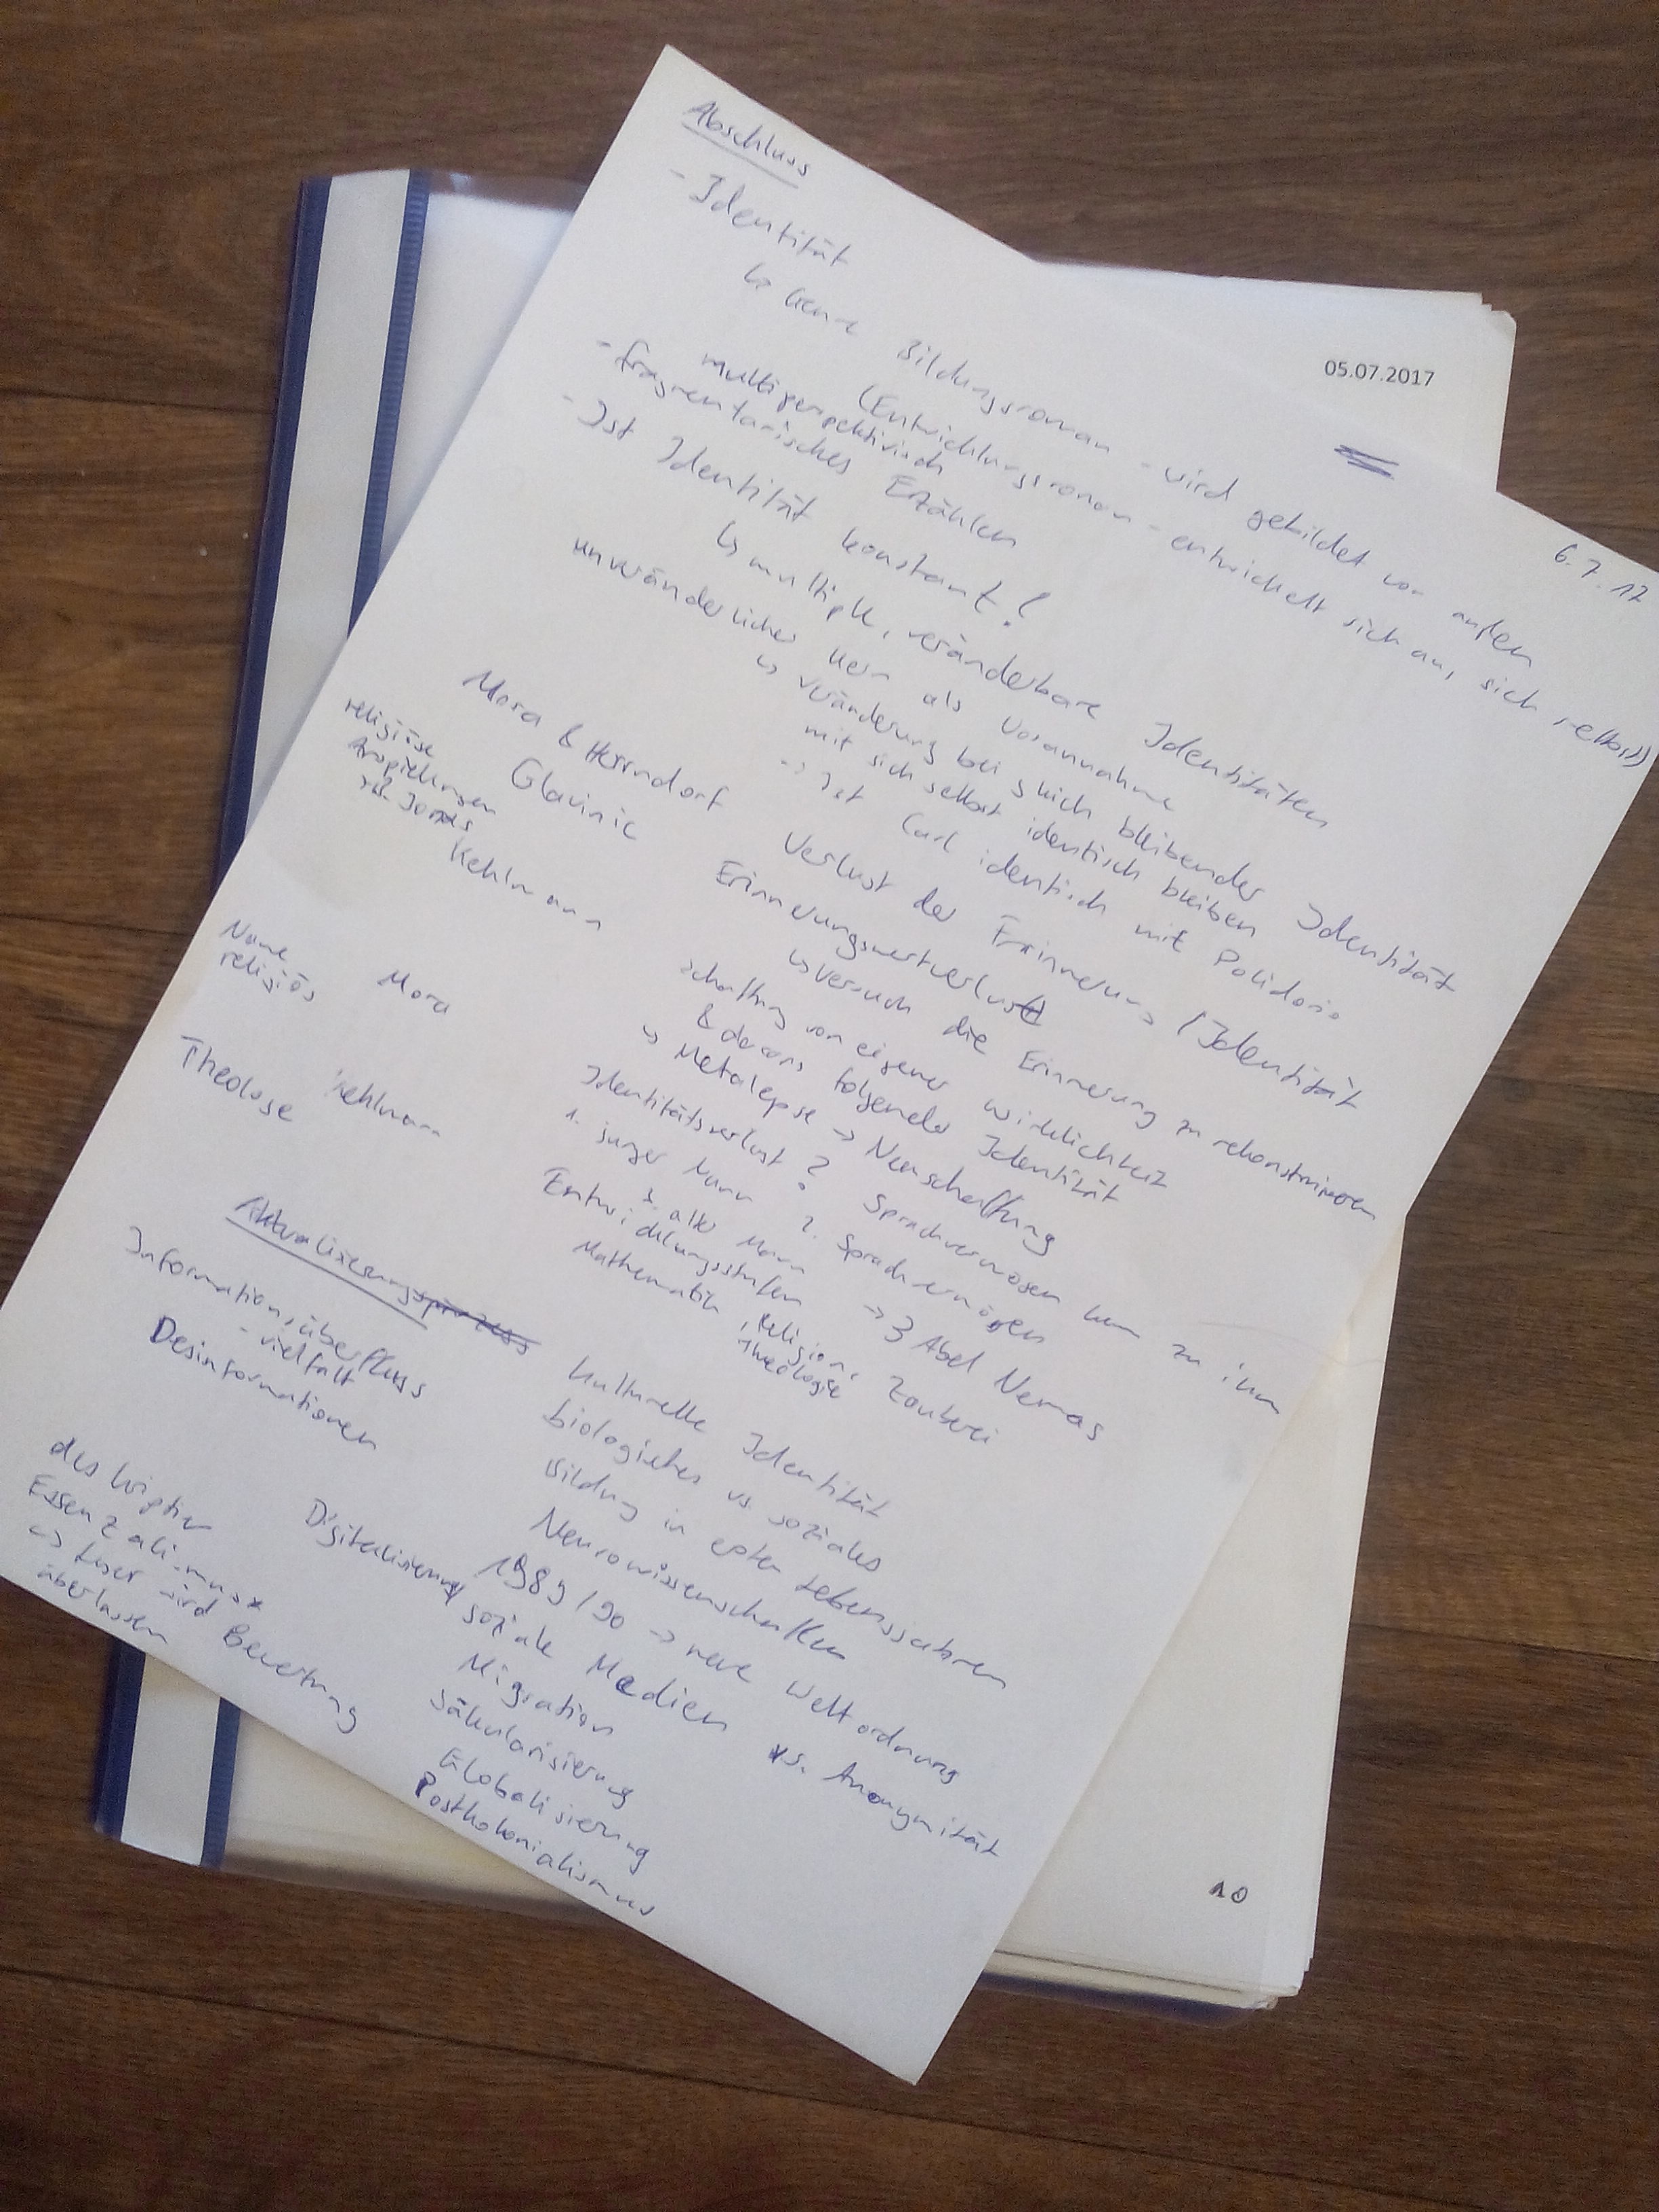 05.07.2017
6.7.17
Abschluss
- Identität
↳ Genre Bildungsroman - wird gebildet von außen
(Entwicklungsroman - entwickelt sich aus sich selbst)
multiperspektivisch
- fragmentarisches Erzählen
- Ist Identität konstant?
↳ multiple, veränderbare Identitäten
unveränderlicher Kern als Vorannahme
↳ Veränderung bei gleich bleibender Identität
mit sich selbst identisch bleiben
-> Ist Carl identisch mit Polidorio
Mora & Herrndorf Verlust der Erinnerung / Identität
religiöse
Anspielungen
Jonas
Glavinic Erinnerungsverlust
↳ Versuch die Erinnerung zu rekonstruieren
Kehlmann Schaffung von eigener Wirklichkeit
& daraus folgender Identität
↳ Metalepse -> Neuschaffung
Name
religiös
Mora Identitätsverlust? Sprachvermögen kam zu ihm
1. junger Mann 2. Sprachvermögen
3. alter Mann -> 3 Abel Nemas
Theologe
Kehlmann Entwicklungsstufen
Mathematik, Religion, Zauberei
Theologie
Aktualisierungsprozess
Informationsüberfluss
- vielfalt
Desinformationen
kulturelle Identität
biologisches vs. soziales
Bildung in ersten Lebensjahren
Neurowissenschaften
1989/90 -> neue Weltordnung
Digitalisierung soziale Medien vs. Anonymität
Migration
Säkularisierung
Globalisierung
Postkolonialismus
deskriptiv
Essenzialismus*
-> Leser wird Bewertung
überlassen
10